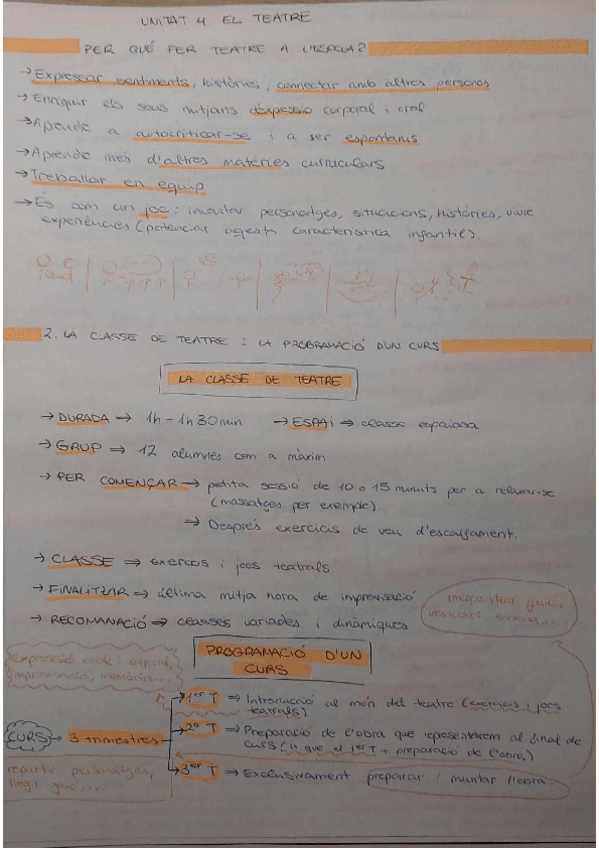 UNITAT 4 EL TEATRE
PER QUÈ FER TEATRE A L'ESCOLA?
→ Expressar sentiments, històries, connectar amb altres persones
→ Enriquir els seus mitjans d'expressió corporal i oral
→ Aprendre a autocriticar-se i a ser espontanis
→ Aprendre més d'altres matèries curriculars
→ Treballar en equip
→ És com un joc: inventar personatges, situacions, històries, viure
experiències (potenciar aquesta característica infantil).
2. LA CLASSE DE TEATRE I LA PROGRAMACIÓ D'UN CURS
LA CLASSE DE TEATRE
→ DURADA → 1h - 1h 30min → ESPAI → classe espaiosa
→ GRUP → 12 alumnes com a màxim
→ PER COMENÇAR → petita sessió de 10 o 15 minuts per a relaxar-se
(massatges per exemple).
→ Després exercicis de veu d'escalfament.
→ CLASSE → exercicis i jocs teatrals
→ FINALITZAR → última mitja hora de improvisació
→ RECOMANACIÓ → classes variades i dinàmiques
memoritzar guió,
vestuari, escena...
PROGRAMACIÓ D'UN
CURS
expressió oral i corporal,
improvisació, memòria...
1er T ⇒ Introducció al món del teatre (exercicis i jocs
teatrals)
CURS → 3 trimestres
2º T ⇒ Preparació de l'obra que representarem al final de
curs (= que el 1er T + preparació de l'obra)
3er T ⇒ Exclusivament preparar i muntar l'obra.
repartir personatges,
llegir guió,...